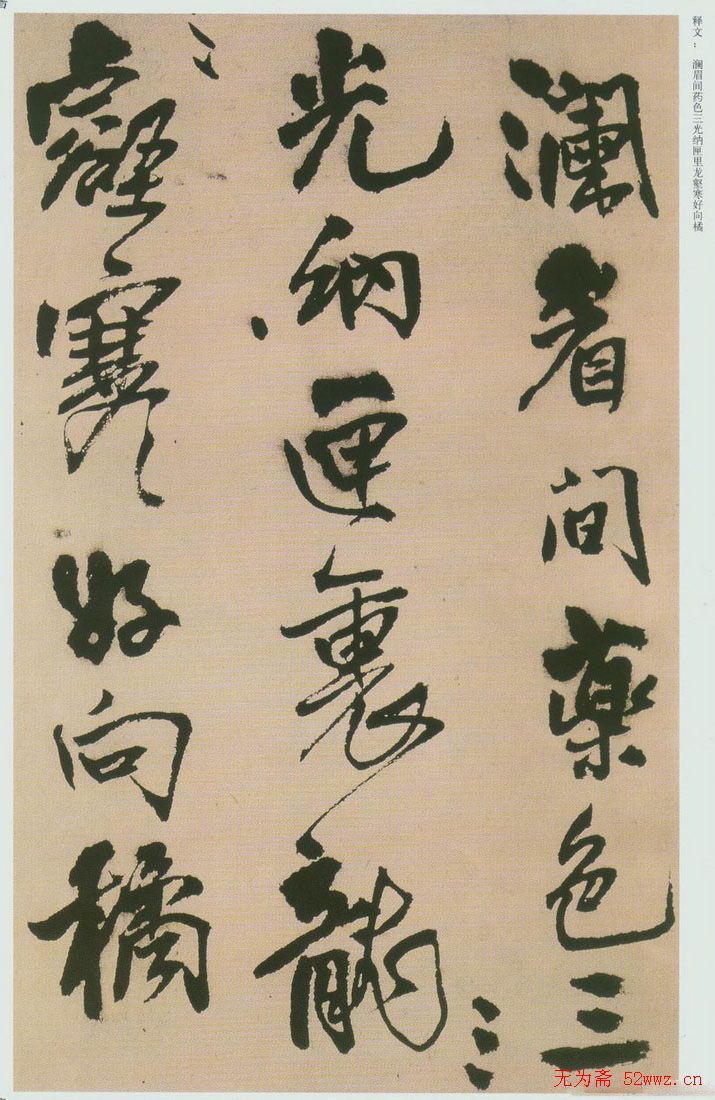 释文： 澜眉间药色三光纳匣里龙壑寒好向橘
澜眉间藥色三
光纳匣裏龍
壑寒好向橘
无为斋 52wwz.cn